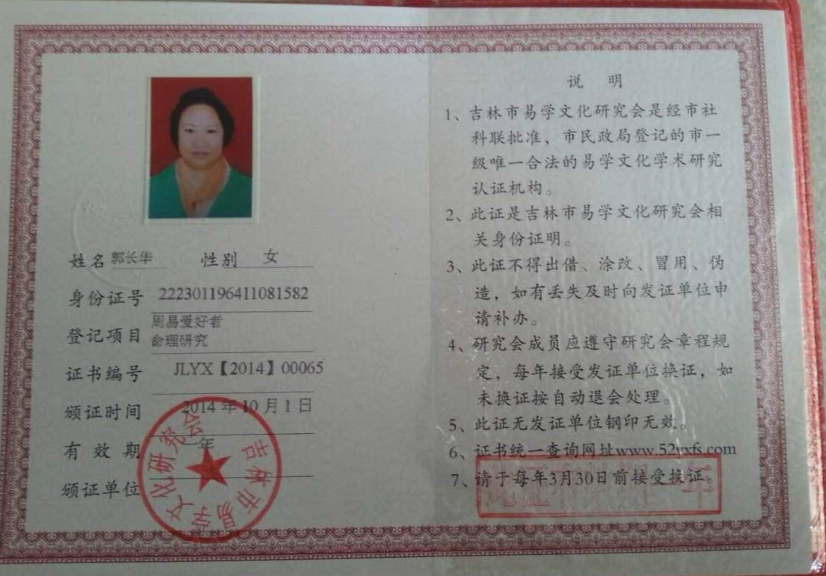 姓名 郭长华 性别 女
身份证号 222301196411081582
登记项目 周易爱好者
命理研究
证书编号 JLYX【2014】00065
颁证时间 2014年10月1日
有效期 年
颁证单位
吉林市易学文化研究会
说 明
1、吉林市易学文化研究会是经市社
科联批准，市民政局登记的市一
级唯一合法的易学文化学术研究
认证机构。
2、此证是吉林市易学文化研究会相
关身份证明。
3、此证不得出借、涂改、冒用、伪
造，如有丢失及时向发证单位申
请补办。
4、研究会成员应遵守研究会章程规
定，每年接受发证单位换证，如
未换证按自动退会处理。
5、此证无发证单位钢印无效。
6、证书统一查询网址www.52yxfs.com
7、请于每年3月30日前接受换证。